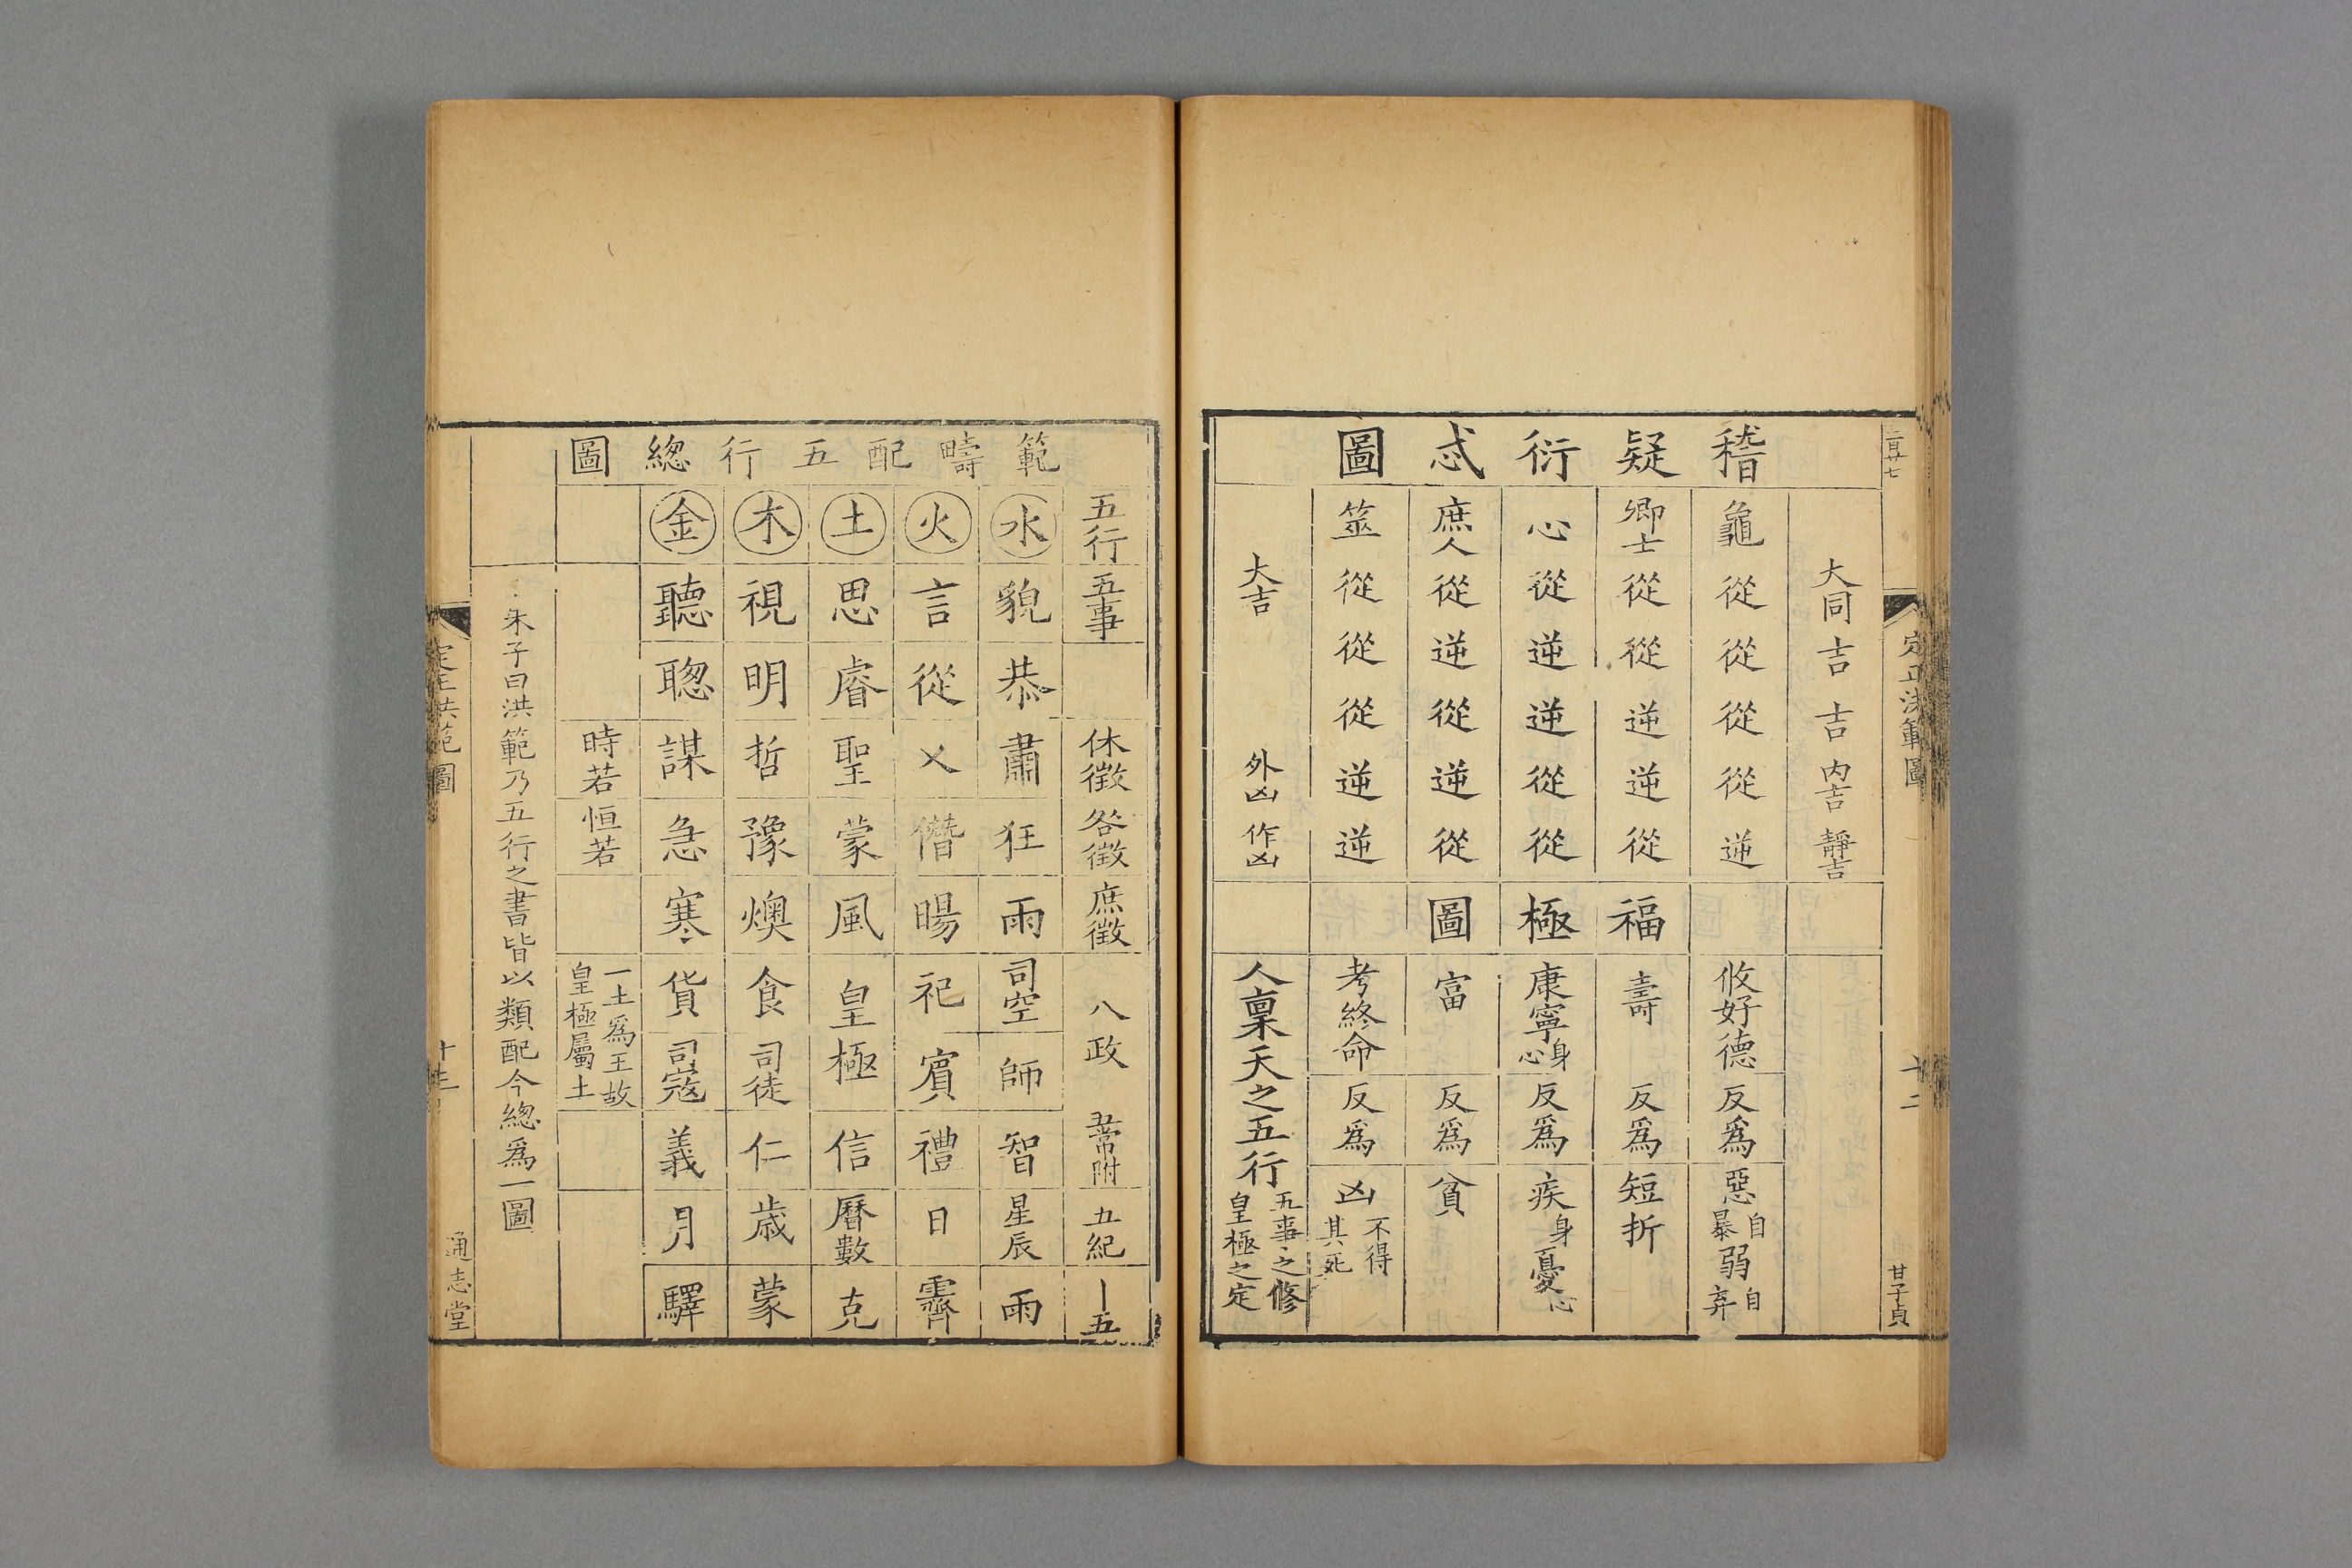 稽疑衍忒圖
大同 吉 吉 内吉 靜吉
龜 從 從 從 從 逆
卿士 從 從 逆 逆 從
心 從 逆 逆 從 從
庶人 從 逆 從 逆 從
筮 從 從 從 逆 逆
大吉 外凶 作凶
福極圖
攸好德 反爲 惡自暴 弱自弃
壽 反爲 短折
康寧身心 反爲 疾身 憂心
富 反爲 貧
考終命 反爲 凶不得其死
人稟天之五行五事之修皇極之定
定正洪範圖
十二
甘子貞
範疇配五行總圖
五行 五事 休徵 咎徵 庶徵 八政 五常附 五紀 卜五
水 貌 恭 肅 狂 雨 司空 師 智 星辰 雨
火 言 從 乂 僭 暘 祀 賓 禮 日 霽
土 思 睿 聖 蒙 風 皇極 信 曆數 克
木 視 明 哲 豫 燠 食 司徒 仁 歲 蒙
金 聽 聰 謀 急 寒 貨 司寇 義 月 驛
時若 恒若 一土爲王故皇極屬土
朱子曰洪範乃五行之書皆以類配今總爲一圖
定正洪範圖
十三
通志堂